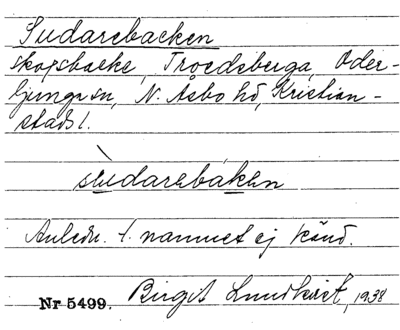 Sudarebacken
skogsbacke, Troedsberga, Oder-
ljunga sn, N. Åsbo hd, Kristian-
stads l.
sùdarebáken
Anledn. t. namnet ej känd.
Nr 5499. Birgit Lundkvist, 1938